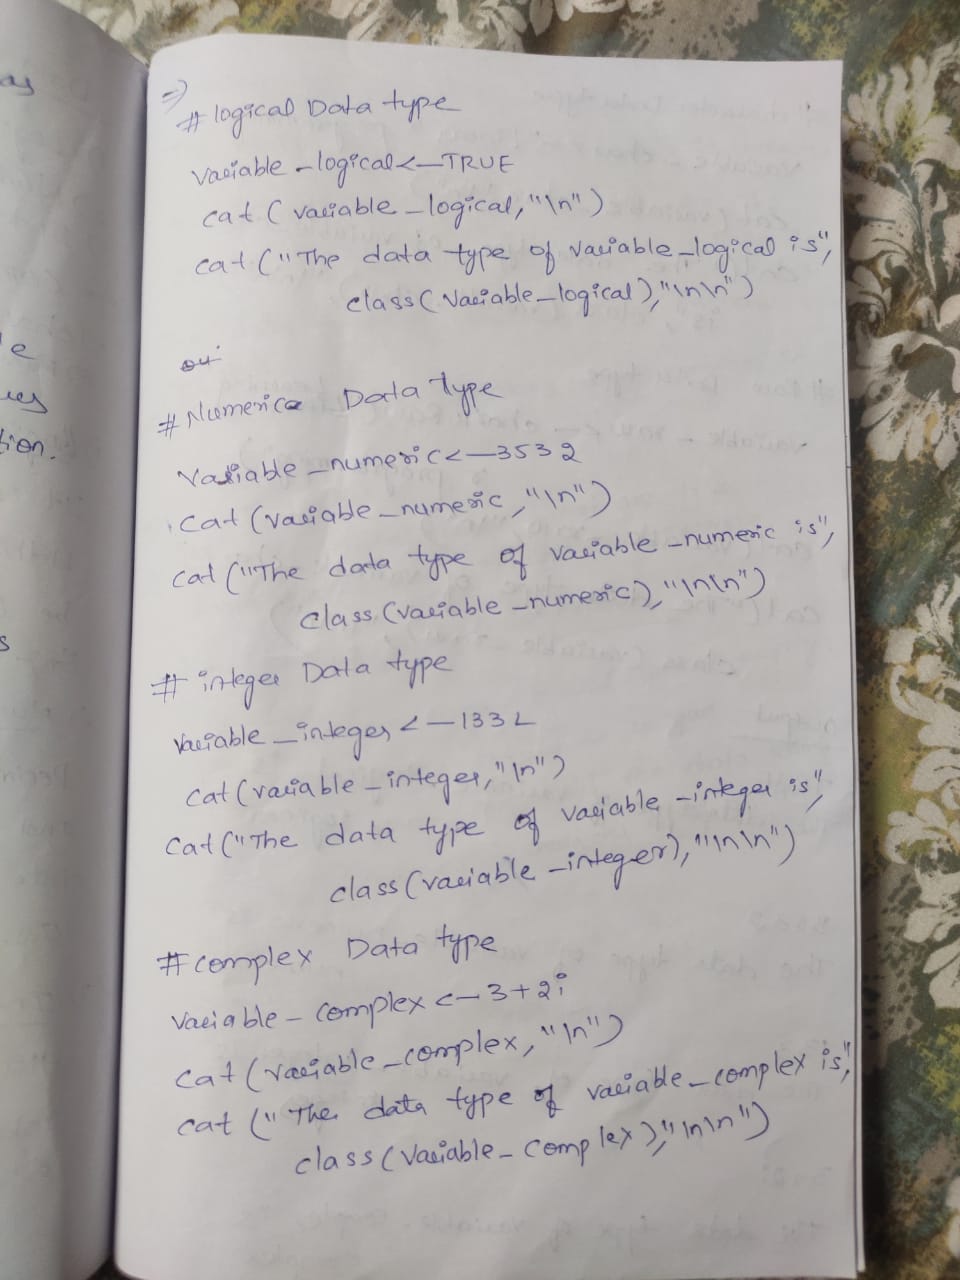 as
e
ues
tion.
s
=>
# logical Data type
variable_logical<-TRUE
cat(variable_logical,"\n")
cat("The data type of variable_logical is",
class(variable_logical),"\n\n")
# Numerica Data type
variable_numeric<-3532
cat(variable_numeric,"\n")
cat("The data type of variable_numeric is",
class(variable_numeric),"\n\n")
# integer Data type
variable_integer<-133L
cat(variable_integer,"\n")
cat("The data type of variable_integer is",
class(variable_integer),"\n\n")
# complex Data type
variable_complex<-3+2i
cat(variable_complex,"\n")
cat("The data type of variable_complex is",
class(variable_complex),"\n\n")